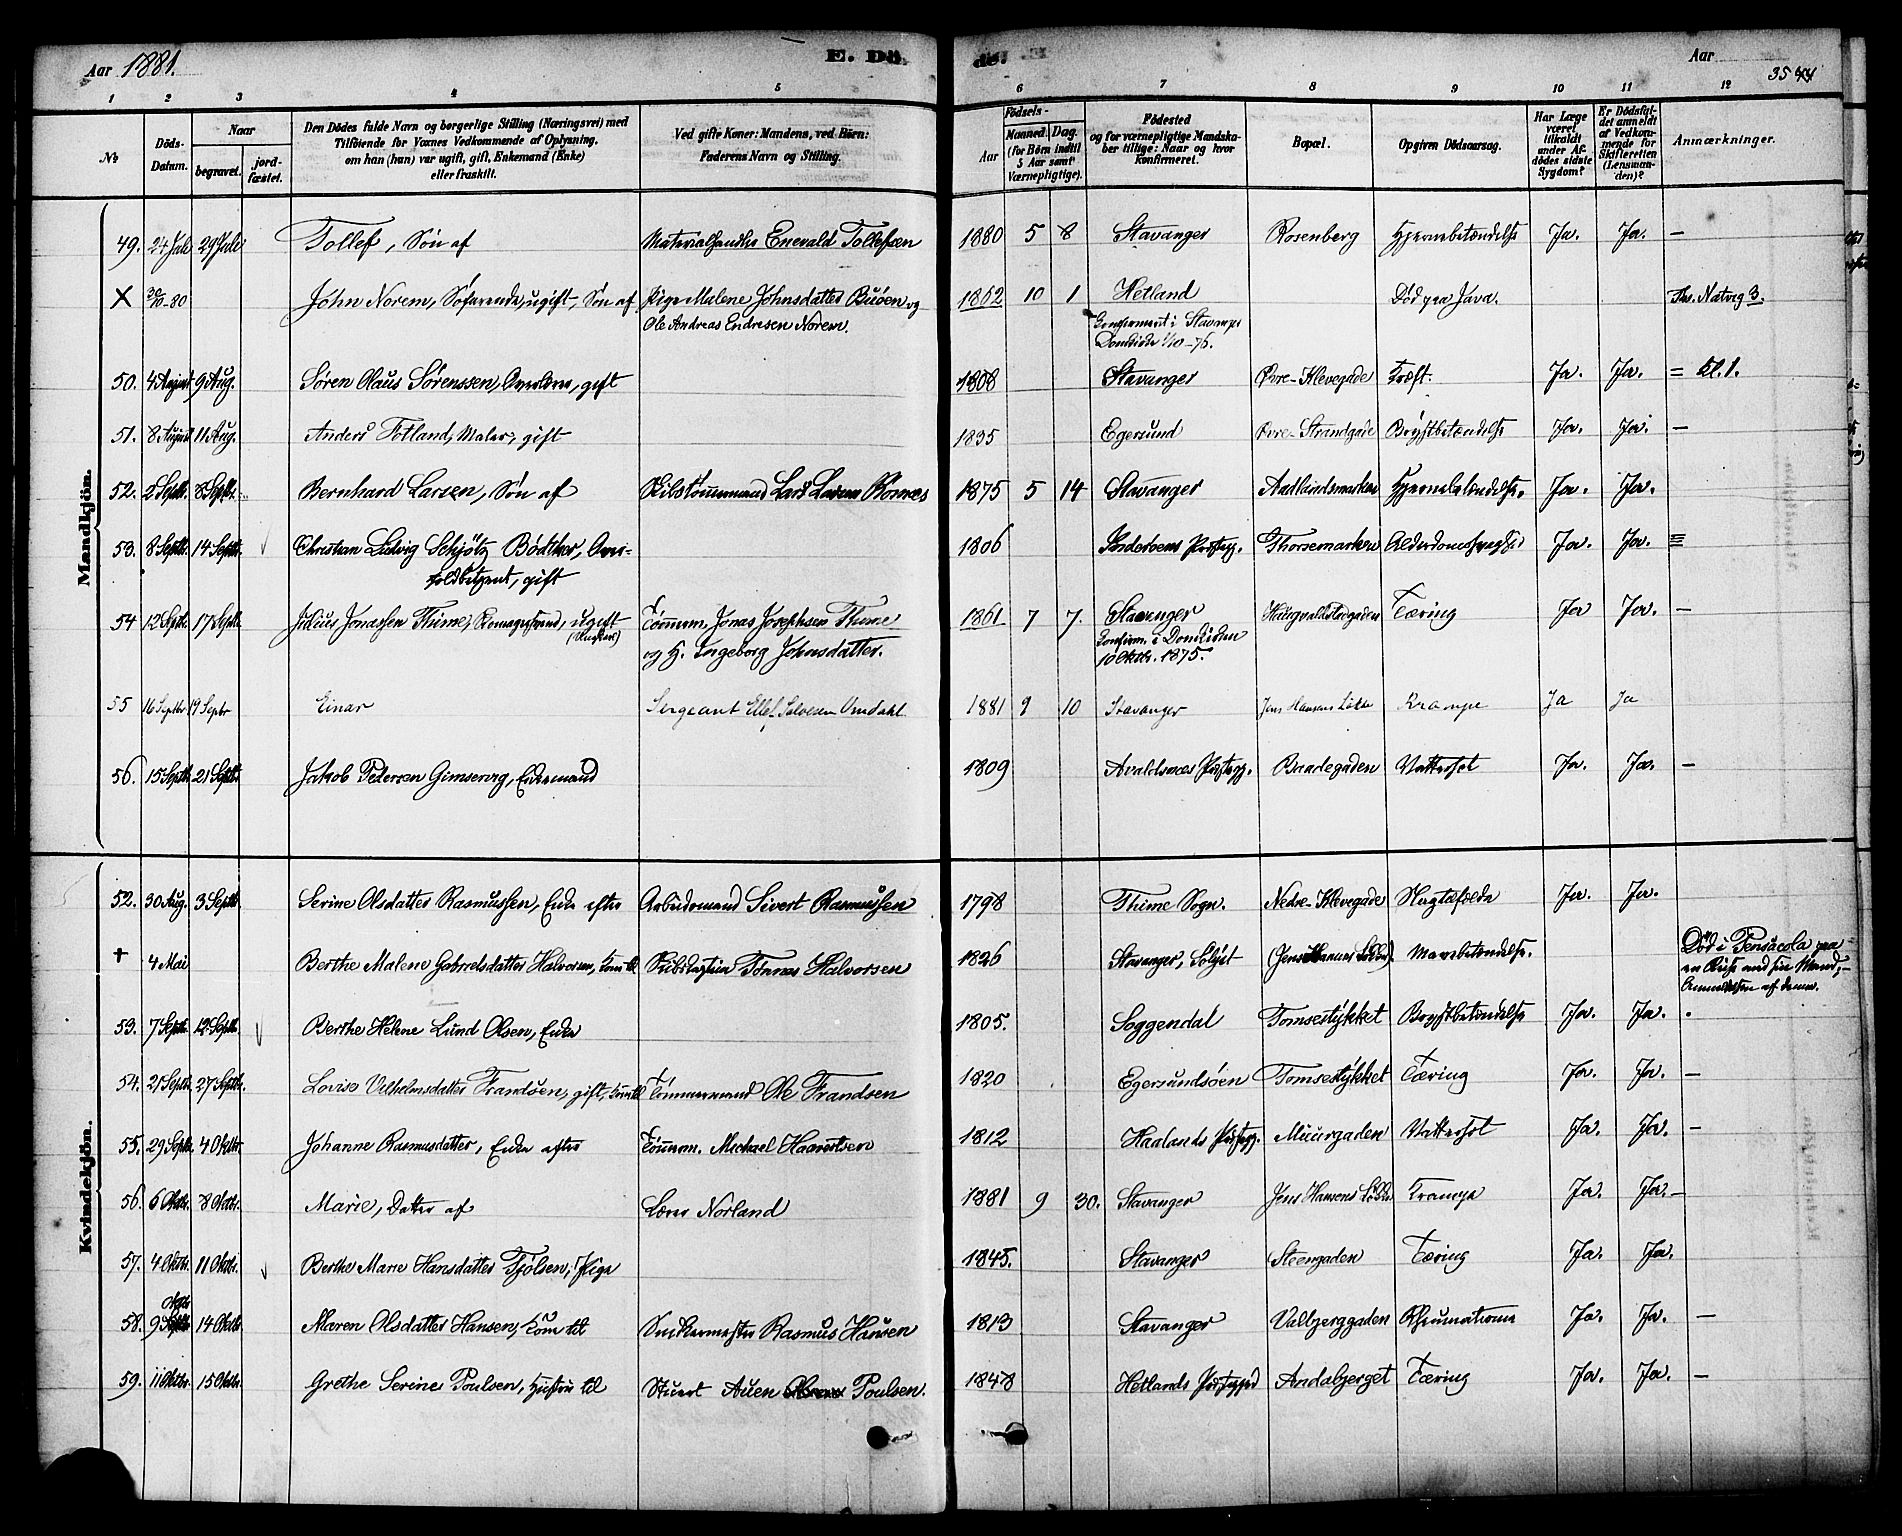 Aar 1881. E. Dö-
de. Aar
3544
1 2 3 4 5 6 7 8 9 10 11 12
No
Döds-
Datum.
Naar
begravet.
jord-
fæstet.
Den Dödes fulde Navn og borgerlige Stilling (Næringsvei) med
Tilföiende for Voxnes Vedkommende af Oplysning,
om han (hun) var ugift, gift, Enkemand (Enke)
eller fraskilt.
Ved gifte Koner: Mandens, ved Börn:
Faderens Navn og Stilling.
Födsels-
Aar
Maaned. Dag.
(for Börn indtil
5 Aar samt
Værnepligtige).
Födested
og for værnepligtige Mandska-
ber tillige: Naar og hvor
konfirmeret.
Bopæl.
Opgiven Dödsaarsag.
Har Læge
været
tilkaldt
under Af-
dödes sidste
Sygdom?
Er Dödsfal-
det anmeldt
af Vedkom-
mende for
Skifteretten
(Lensman-
den)?
Anmærkninger.
Mandkjön.
49. 24 Juli 29 Juli Tollef, Søn af Materialhandler Enevald Tollefsen 1880 5 8 Stavanger Rosenberg Hjernebetændelse Ja. Ja. —
X 30/10-80 John Norem, Søfarende, ugift, Søn af Pige Malene Johnsdatter Buøen og 1862 10 1 Hetland Død paa Java. Ths. Natvig 3.
Ole Andreas Endresen Norem. Konfirmeret i Stavanger
Domkirke 1/10-76.
50. 4 August 9 Aug. Søren Olaus Sørenssen, gift 1808 Stavanger Øvre-Klevegade Kræft. Ja. Ja. = Kl. 1.
51. 8 August 11 Aug. Anders Totland, Maler, gift 1835 Egersund Øvre-Strandgade Brystbetændelse Ja. Ja. —
52. 2 Septb. 8 Septb. Bernhard Larsen, Søn af Skibstømmermand Lars Larsen 1875 5 14 Stavanger Aadlandsmarken Hjernebetændelse. Ja. Ja.
53. 8 Septb. 14 Septb. Christian Ludvig Schjötz Bödtker, 1806 Præstegj. Thorsemarken Ja. Ja.
gift
54 12 Septb. 17 Septb. Julius Jonassen Thime, ugift Tømmerm. Jonas Josephsen Thime 1861 7 7. Stavanger Haugvaldstadgaden Tæring Ja Ja. —
og H. Ingeborg Johnsdatter. Konfirm. i Domkirken
10 Oktbr. 1875.
55 16 Septbr 19 Septbr Einar Sergeant Ellef Salvesen Omdahl 1881 9 10 Stavanger Jens Hansens Løkke Krampe Ja Ja
56. 15 Septb. 21 Septb. Jakob Pedersen Gimservig, Enkemand 1809 Avaldsnes Præstegj. Baadegaden Vattersot Ja. Ja. —
Kvindekjön.
52. 30 Aug. 3 Septb. Serine Olsdatter Rasmussen, Enke efter Arbeidsmand Sivert Rasmussen 1798 Thime Sogn. Nedre-Klevegade Ja. Ja.
† 4 Mai Berthe Malene Gabrielsdatter Halvorsen, Kone til Skibskaptein Tønnes Halvorsen 1826 Stavanger, Mavebetændelse. Død i Pensacola paa
en Reise med sin Mand;
Anmeldelse af denne.
53. 7 Septb. 12 Septb. Berthe Helene Lund Olsen, Enke 1805. Soggendal Tomsestykket Brystbetændelse Ja. Ja.
54. 21 Septb. 27 Septb. Lovise Vilhelmsdatter Frandsen, gift, Kone til Tømmermand Ole Frandsen 1820 Egersundsøen Tomsestykket Tæring Ja. Ja. —
55. 29 Septb. 4 Oktbr. Johanne Rasmusdatter, Enke efter Tømmerm. Michael Haavertsen 1812 Haalands Præstegj. Muurgaden Vattersot Ja. Ja. —
56. 6 Oktbr. 8 Oktbr. Marie, Datter af Lærer Norland 1881 9 30. Stavanger Jens Hansens Løkke Ja. Ja. —
57. 4 Oktbr. 11 Oktbr. Berthe Marie Hansdatter Tjølsen, Pige 1845. Stavanger Steengaden Tæring Ja. Ja.
58. 9 Oktbr 14 Oktbr. Maren Olsdatter Hansen, Kone til Snedkermester Rasmus Hansen 1813 Stavanger Valbjerggaden Rheumatisme Ja. Ja. —
59. 11 Oktbr. 15 Oktbr. Grethe Serine Poulsen, Hustru til Stuert Auen Poulsen. 1848 Hetlands Præstegjeld Andabjerget Tæring Ja. Ja. —